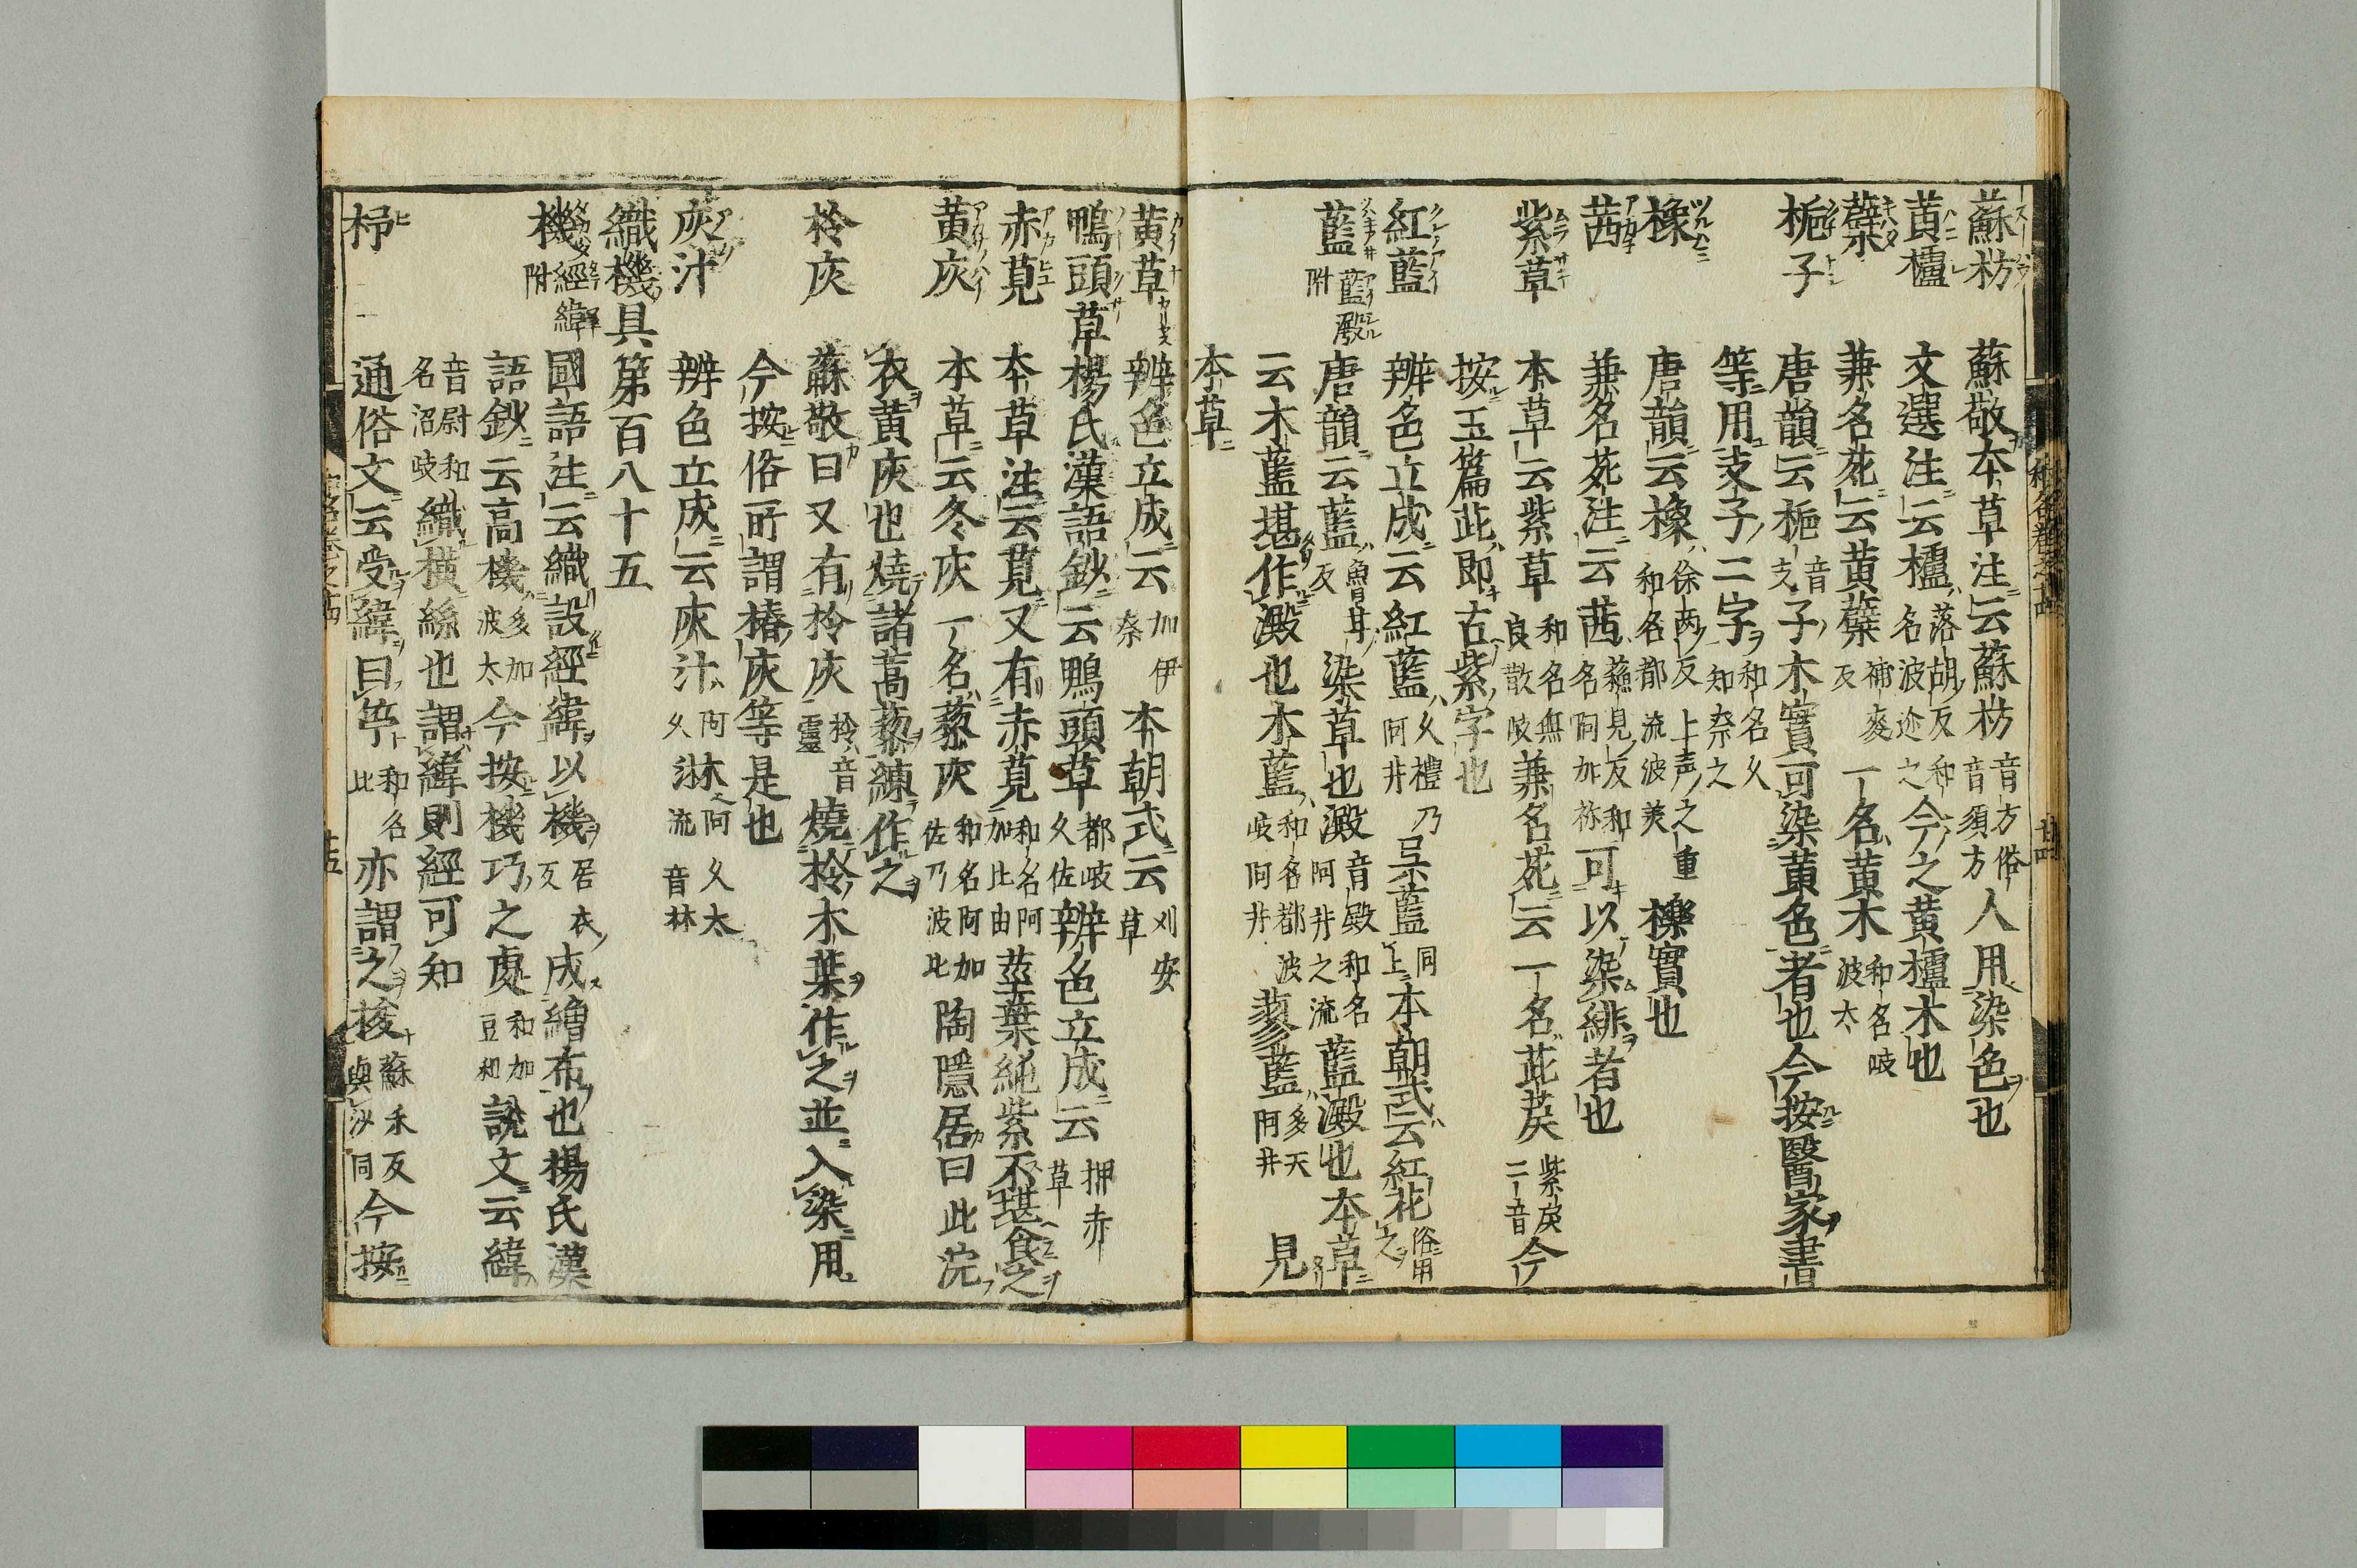 蘇枋 蘇敬本草注云蘇枋音方俗音須方人用染色也
黄櫨 文選注云櫨落胡反和名波迩之今之黄櫨木也
蘗 兼名苑云黄蘗補麥反一名黄木和名岐波太
梔子 唐韻云梔音支子木實可染黄色者也今按醫家書
等用支子二字和名久知奈之
橡 唐韻云橡徐両反上声之重和名都流波美櫟實也
茜 兼名苑注云茜蘓見反和名阿加祢可以染緋者也
紫草 本草云紫草和名無良散岐兼名苑云一名茈䓞紫戻二音今
按玉篇茈即古紫字也
紅藍 辨色立成云紅藍久禮乃阿井呉藍同上本朝式云紅花俗用之
藍 藍澱附 唐韻云藍魯甘反染草也澱音殿和名阿井之流藍澱也本草
云木藍堪作澱也木藍和名都波岐阿井蓼藍多天阿井見
本草
黄草 辨色立成云加伊奈本朝式云刈安草
鴨頭草 楊氏漢語鈔云鴨頭草都岐久佐辨色立成云押赤草
赤莧 本草注云莧又有赤莧和名阿加比由莖葉純紫不堪食之
黄灰 本草云冬灰一名藜灰和名阿加佐乃波比陶隱居曰此浣
衣黄灰也燒諸蒿藜練作之
柃灰 蘇敬曰又有柃灰柃音靈燒柃木葉作之並入染用
今按俗所謂椿灰等是也
灰汁 辨色立成云灰汁阿久淋灰阿久太流音林
織機具第百八十五
機 經緯附 國語注云織設經緯以機居衣反成繒布也楊氏漢
語鈔云高機多加波太今按機巧之處和加豆利說文云緯
音尉和名沼岐織橫絲也謂緯則經可知
杼 通俗文云受緯曰䇡和名比亦謂之梭蘇禾反與㳊同今按